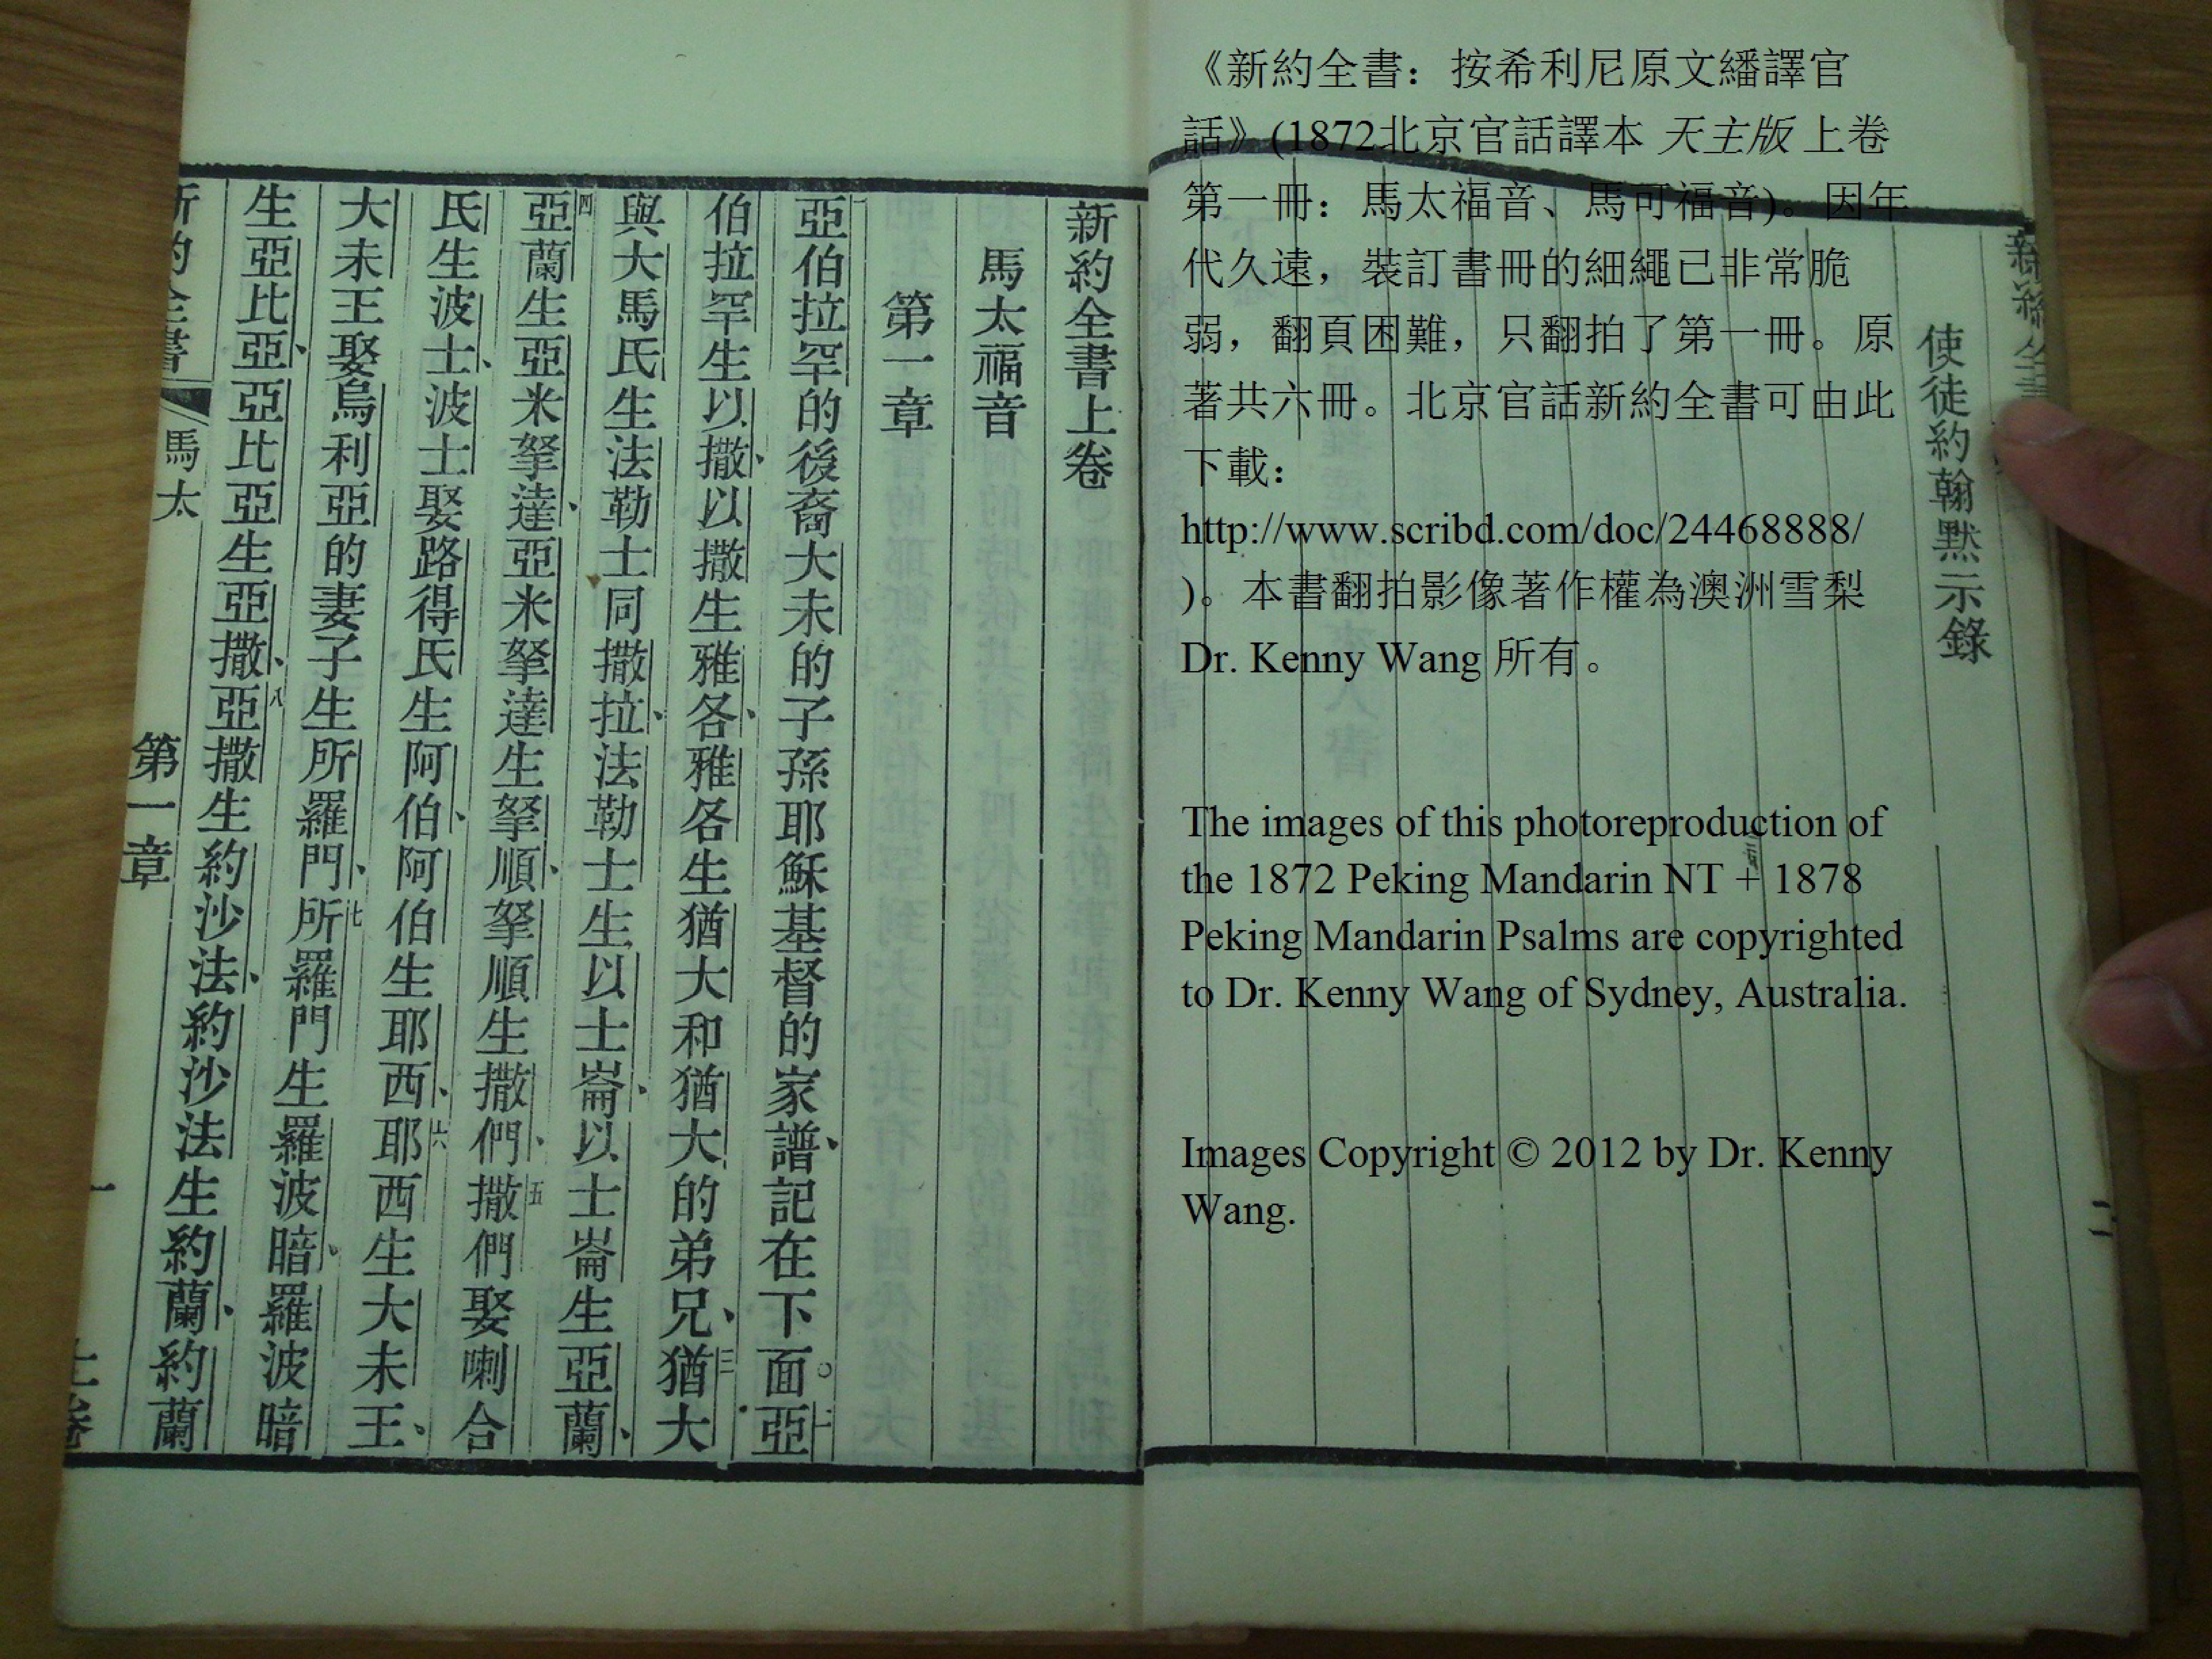 《新約全書：按希利尼原文繙譯官
話》(1872北京官話譯本 天主版 上卷
第一冊：馬太福音、馬可福音)。因年
代久遠，裝訂書冊的細繩已非常脆
弱，翻頁困難，只翻拍了第一冊。原
著共六冊。北京官話新約全書可由此
下載：
http://www.scribd.com/doc/24468888/
)。本書翻拍影像著作權為澳洲雪梨
Dr. Kenny Wang 所有。
The images of this photoreproduction of
the 1872 Peking Mandarin NT + 1878
Peking Mandarin Psalms are copyrighted
to Dr. Kenny Wang of Sydney, Australia.
Images Copyright © 2012 by Dr. Kenny
Wang.
新約全書
二
使徒約翰默示錄
新約全書上卷
馬太福音
第一章
一亞伯拉罕的後裔大未的子孫耶穌基督的家譜、記在下面。二亞
伯拉罕生以撒、以撒生雅各、雅各生猶大和猶大的弟兄、三猶大
與大馬氏生法勒士同撒拉、法勒士生以士崙、以士崙生亞蘭、
四亞蘭生亞米拏達、亞米拏達生拏順、拏順生撒們、五撒們娶喇合
氏生波士、波士娶路得氏生阿伯、阿伯生耶西、六耶西生大未王、
大未王娶烏利亞的妻子生所羅門、七所羅門生羅波暗、羅波暗
生亞比亞、亞比亞生亞撒、八亞撒生約沙法、約沙法生約蘭、約蘭
新約全書
馬太
第一章
一
上卷